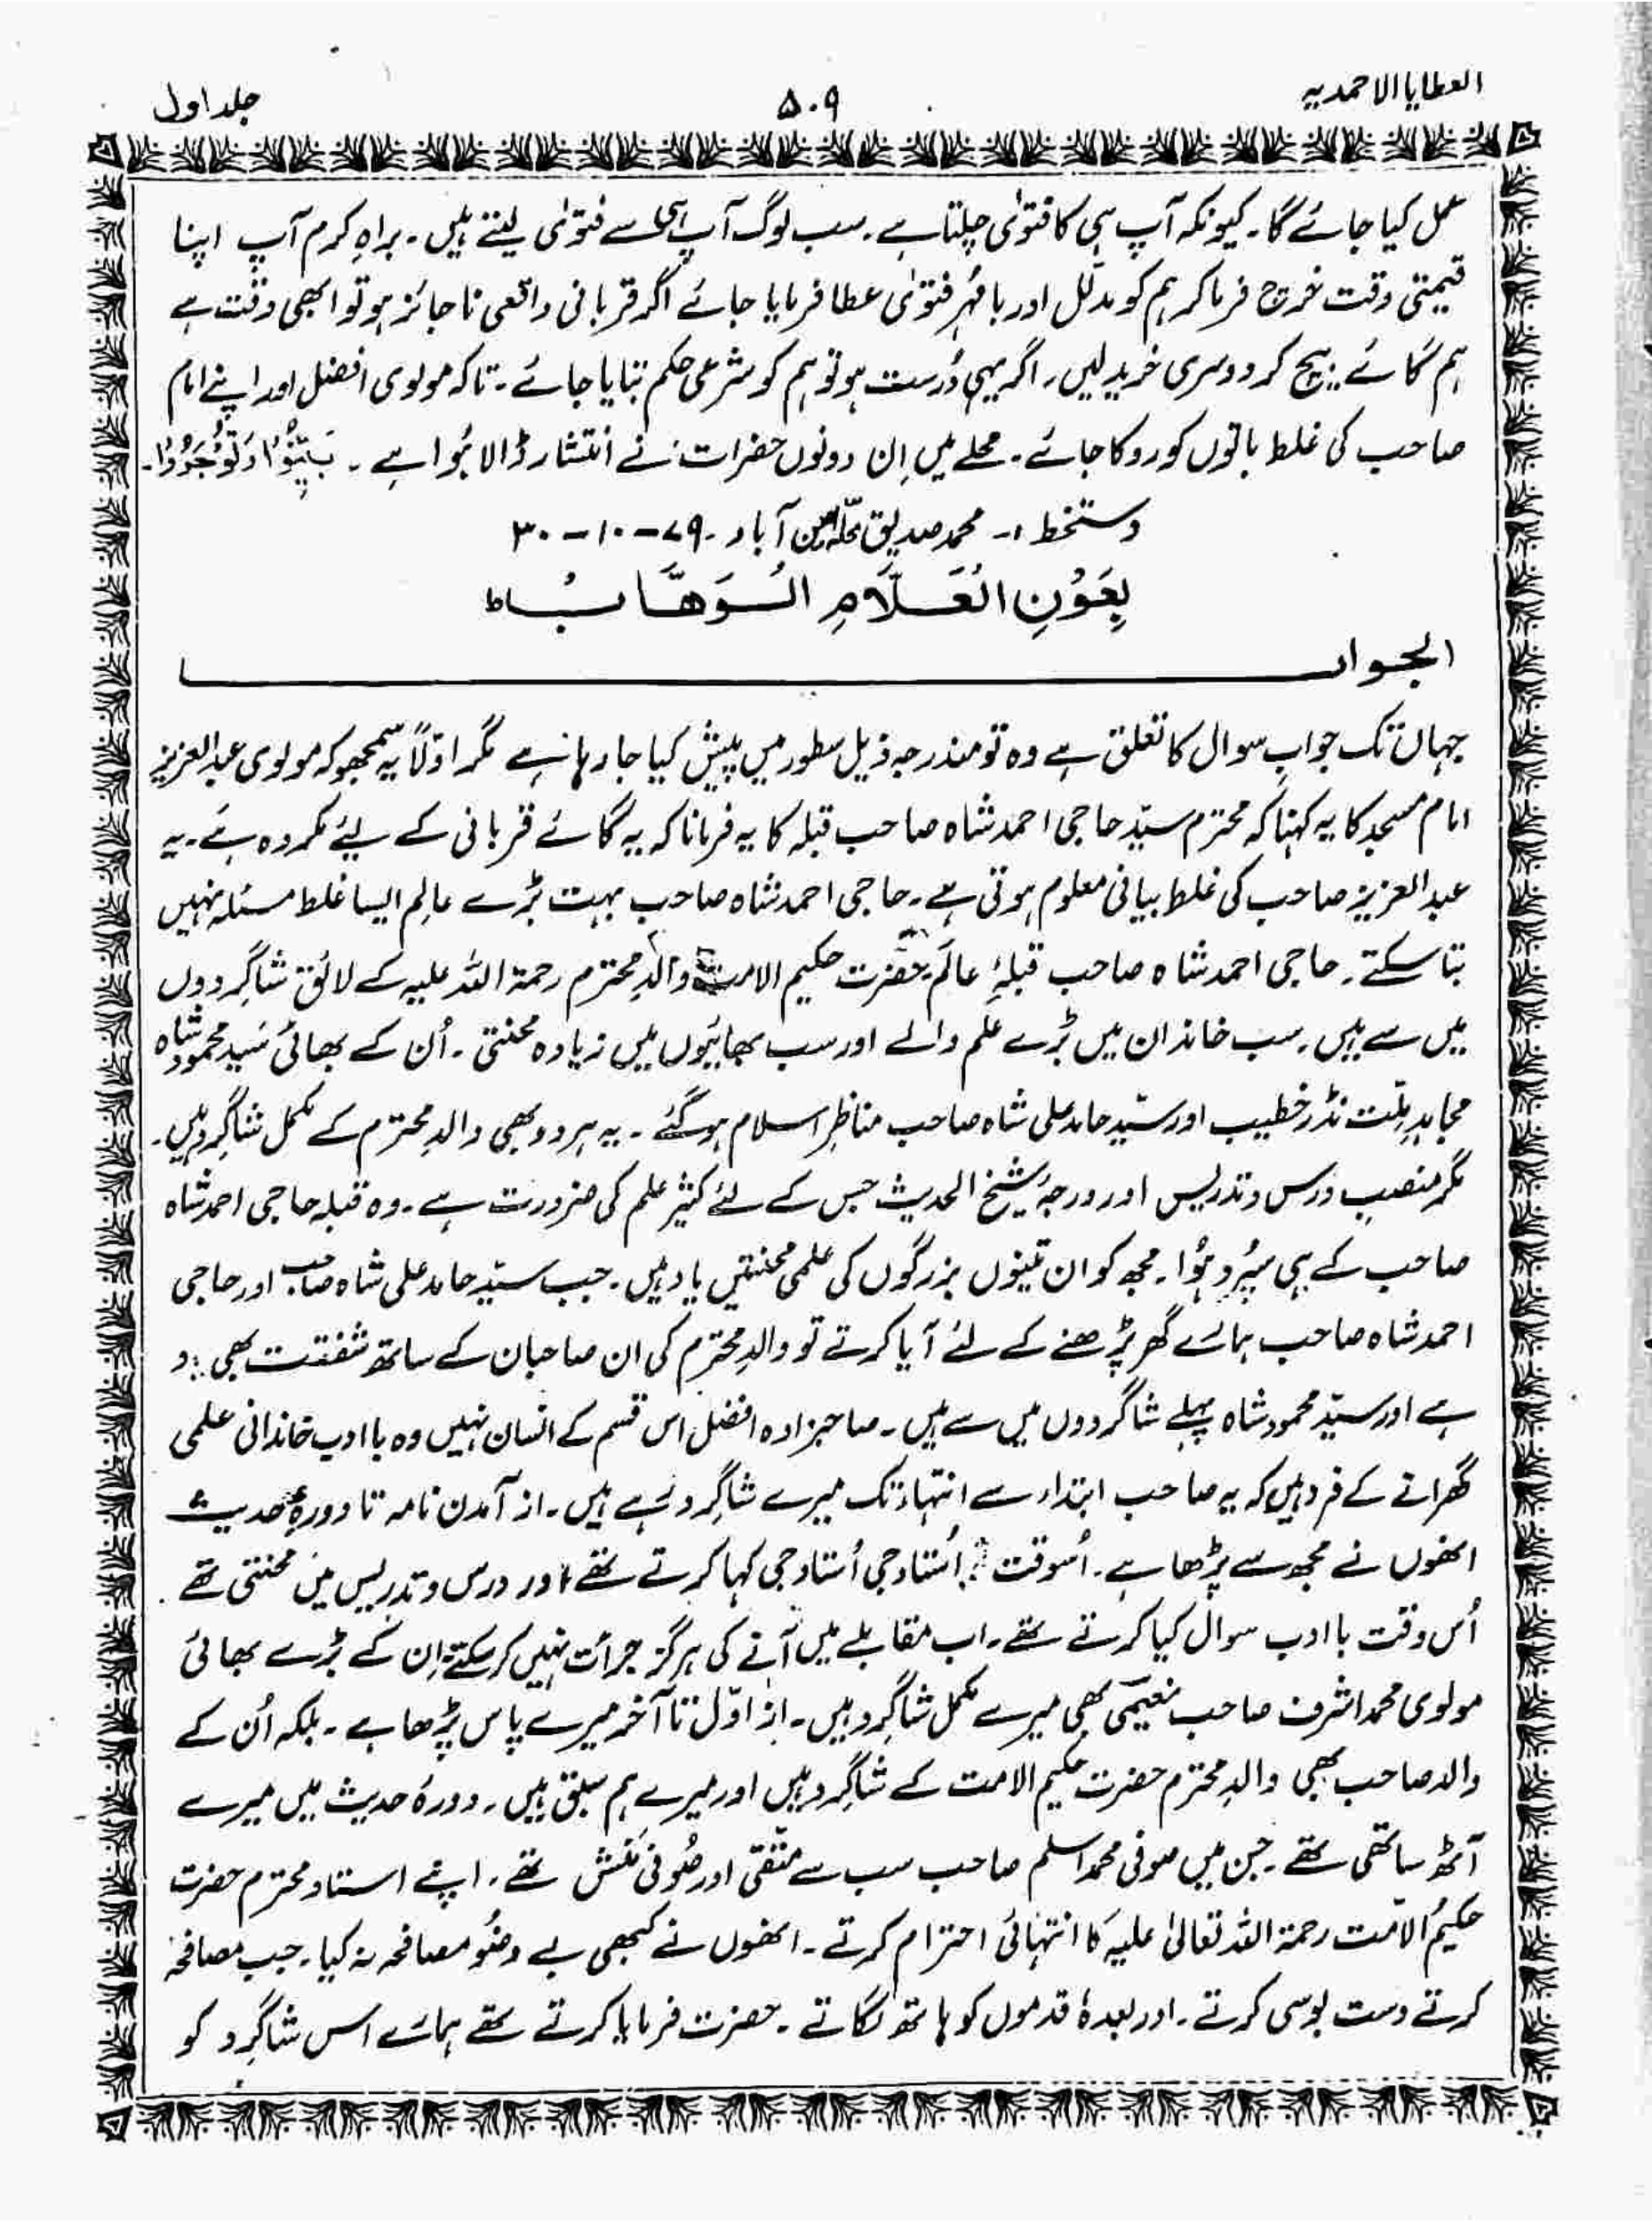 العطایا الاحمدیہ
۵۰۹
جلد اول
عمل کیا جائے گا۔ کیونکہ آپ ہی کا فتوٰی چلتا ہے۔ سب لوگ آپ ہی سے فتوٰی لیتے ہیں۔ براہِ کرم آپ اپنا
قیمتی وقت خرچ فرما کر ہم کو مدلّل اور بامُہر فتوٰی عطا فرمایا جائے اگر قربانی واقعی ناجائز ہو تو ابھی وقت ہے
ہم گائے بیچ کر دوسری خرید لیں۔ اگر یہی دُرست ہو تو ہم کو شرعی حکم بتایا جائے۔ تاکہ مولوی افضل اور اپنے امام
صاحب کی غلط باتوں کو روکا جائے۔ محلے میں اِن دونوں حضرات نے انتشار ڈالا ہُوا ہے۔ بَیِّنُوْا وَتُوْجَرُوْا۔
دستخط :۔ محمد صدیق محلّہ امین آباد ۔ ۷۹-۱۰-۳۰
بِعَوْنِ الْعَلَّامِ الْوَهَّابُ ط
الجواب
جہاں تک جوابِ سوال کا تعلق ہے وہ تو مندرجہ ذیل سطور میں پیش کیا جا رہا ہے مگر اوّلاً یہ سمجھو کہ مولوی عبدالعزیز
امام مسجد کا یہ کہنا کہ محترم سیّد حاجی احمد شاہ صاحب قبلہ کا یہ فرمانا کہ یہ گائے قربانی کے لیئے مکروہ ہے۔ یہ
عبدالعزیز صاحب کی غلط بیانی معلوم ہوتی ہے۔ حاجی احمد شاہ صاحب بہت بڑے عالِم ایسا غلط مسئلہ نہیں
بتا سکتے۔ حاجی احمد شاہ صاحب قبلۂِ عالَم حضرت حکیم الامت والدِ محترم رحمۃ اللہ علیہ کے لائق شاگردوں
میں سے ہیں۔ سب خاندان میں بڑے علم والے اور سب بھائیوں میں زیادہ محنتی۔ اُن کے بھائی سَید محمود شاہ
مجاہدِ ملّت نڈر خطیب اور سیّد حامد علی شاہ صاحب مناظرِ اسلام ہو گئے ۔ یہ ہر دو بھی والدِ محترم کے مکمل شاگرد ہیں۔
مگر منصبِ درس و تدریس اور درجۂ شیخ الحدیث جس کے لئے کثیر علم کی ضرورت ہے۔ وہ قبلہ حاجی احمد شاہ
صاحب کے ہی سپُرد ہُوا۔ مجھ کو ان تینوں بزرگوں کی علمی محنتیں یاد ہیں۔ جب سیّد حامد علی شاہ صاحب اور حاجی
احمد شاہ صاحب ہمارے گھر پڑھنے کے لئے آیا کرتے تو والدِ محترم کی ان صاحبان کے ساتھ شفقت بھی
ہے اور سیّد محمود شاہ پہلے شاگردوں میں سے ہیں۔ صاحبزادہ افضل اس قسم کے انسان نہیں وہ باادب خاندانی علمی
گھرانے کے فرد ہیں کہ یہ صاحب ابتداء سے انتہا تک میرے شاگرد رہے ہیں۔ از آمدن نامہ تا دورۂِ حدیث
انھوں نے مجھ سے پڑھا ہے۔ اُسوقت اُستاد جی اُستاد جی کہا کرتے تھے اور درس و تدریس میں محنتی تھے۔
اُس وقت باادب سوال کیا کرتے تھے۔ اب مقابلے میں آنے کی ہرگز جرأت نہیں کر سکتے اِن کے بڑے بھائی
مولوی محمد اشرف صاحب نعیمی بھی میرے مکمل شاگرد ہیں۔ از اوّل تا آخر میرے پاس پڑھا ہے ۔ بلکہ اُن کے
والد صاحب بھی والدِ محترم حضرت حکیم الامت کے شاگرد ہیں اور میرے ہم سبق ہیں۔ دورۂ حدیث میں میرے
آٹھ ساتھی تھے۔ جن میں صوفی محمد اسلم صاحب سب سے متّقی اور صُوفی مَنش تھے۔ اپنے استاد محترم حضرت
حکیمُ الامّت رحمۃ اللہ تعالیٰ علیہ کا انتہائی احترام کرتے۔ انھوں نے کبھی بے وضُو مصافحہ نہ کیا۔ جب مصافحہ
کرتے دست بوسی کرتے۔ اور بعدہٗ قدموں کو ہاتھ لگاتے۔ حضرت فرمایا کرتے تھے ہمارے اس شاگرد کو